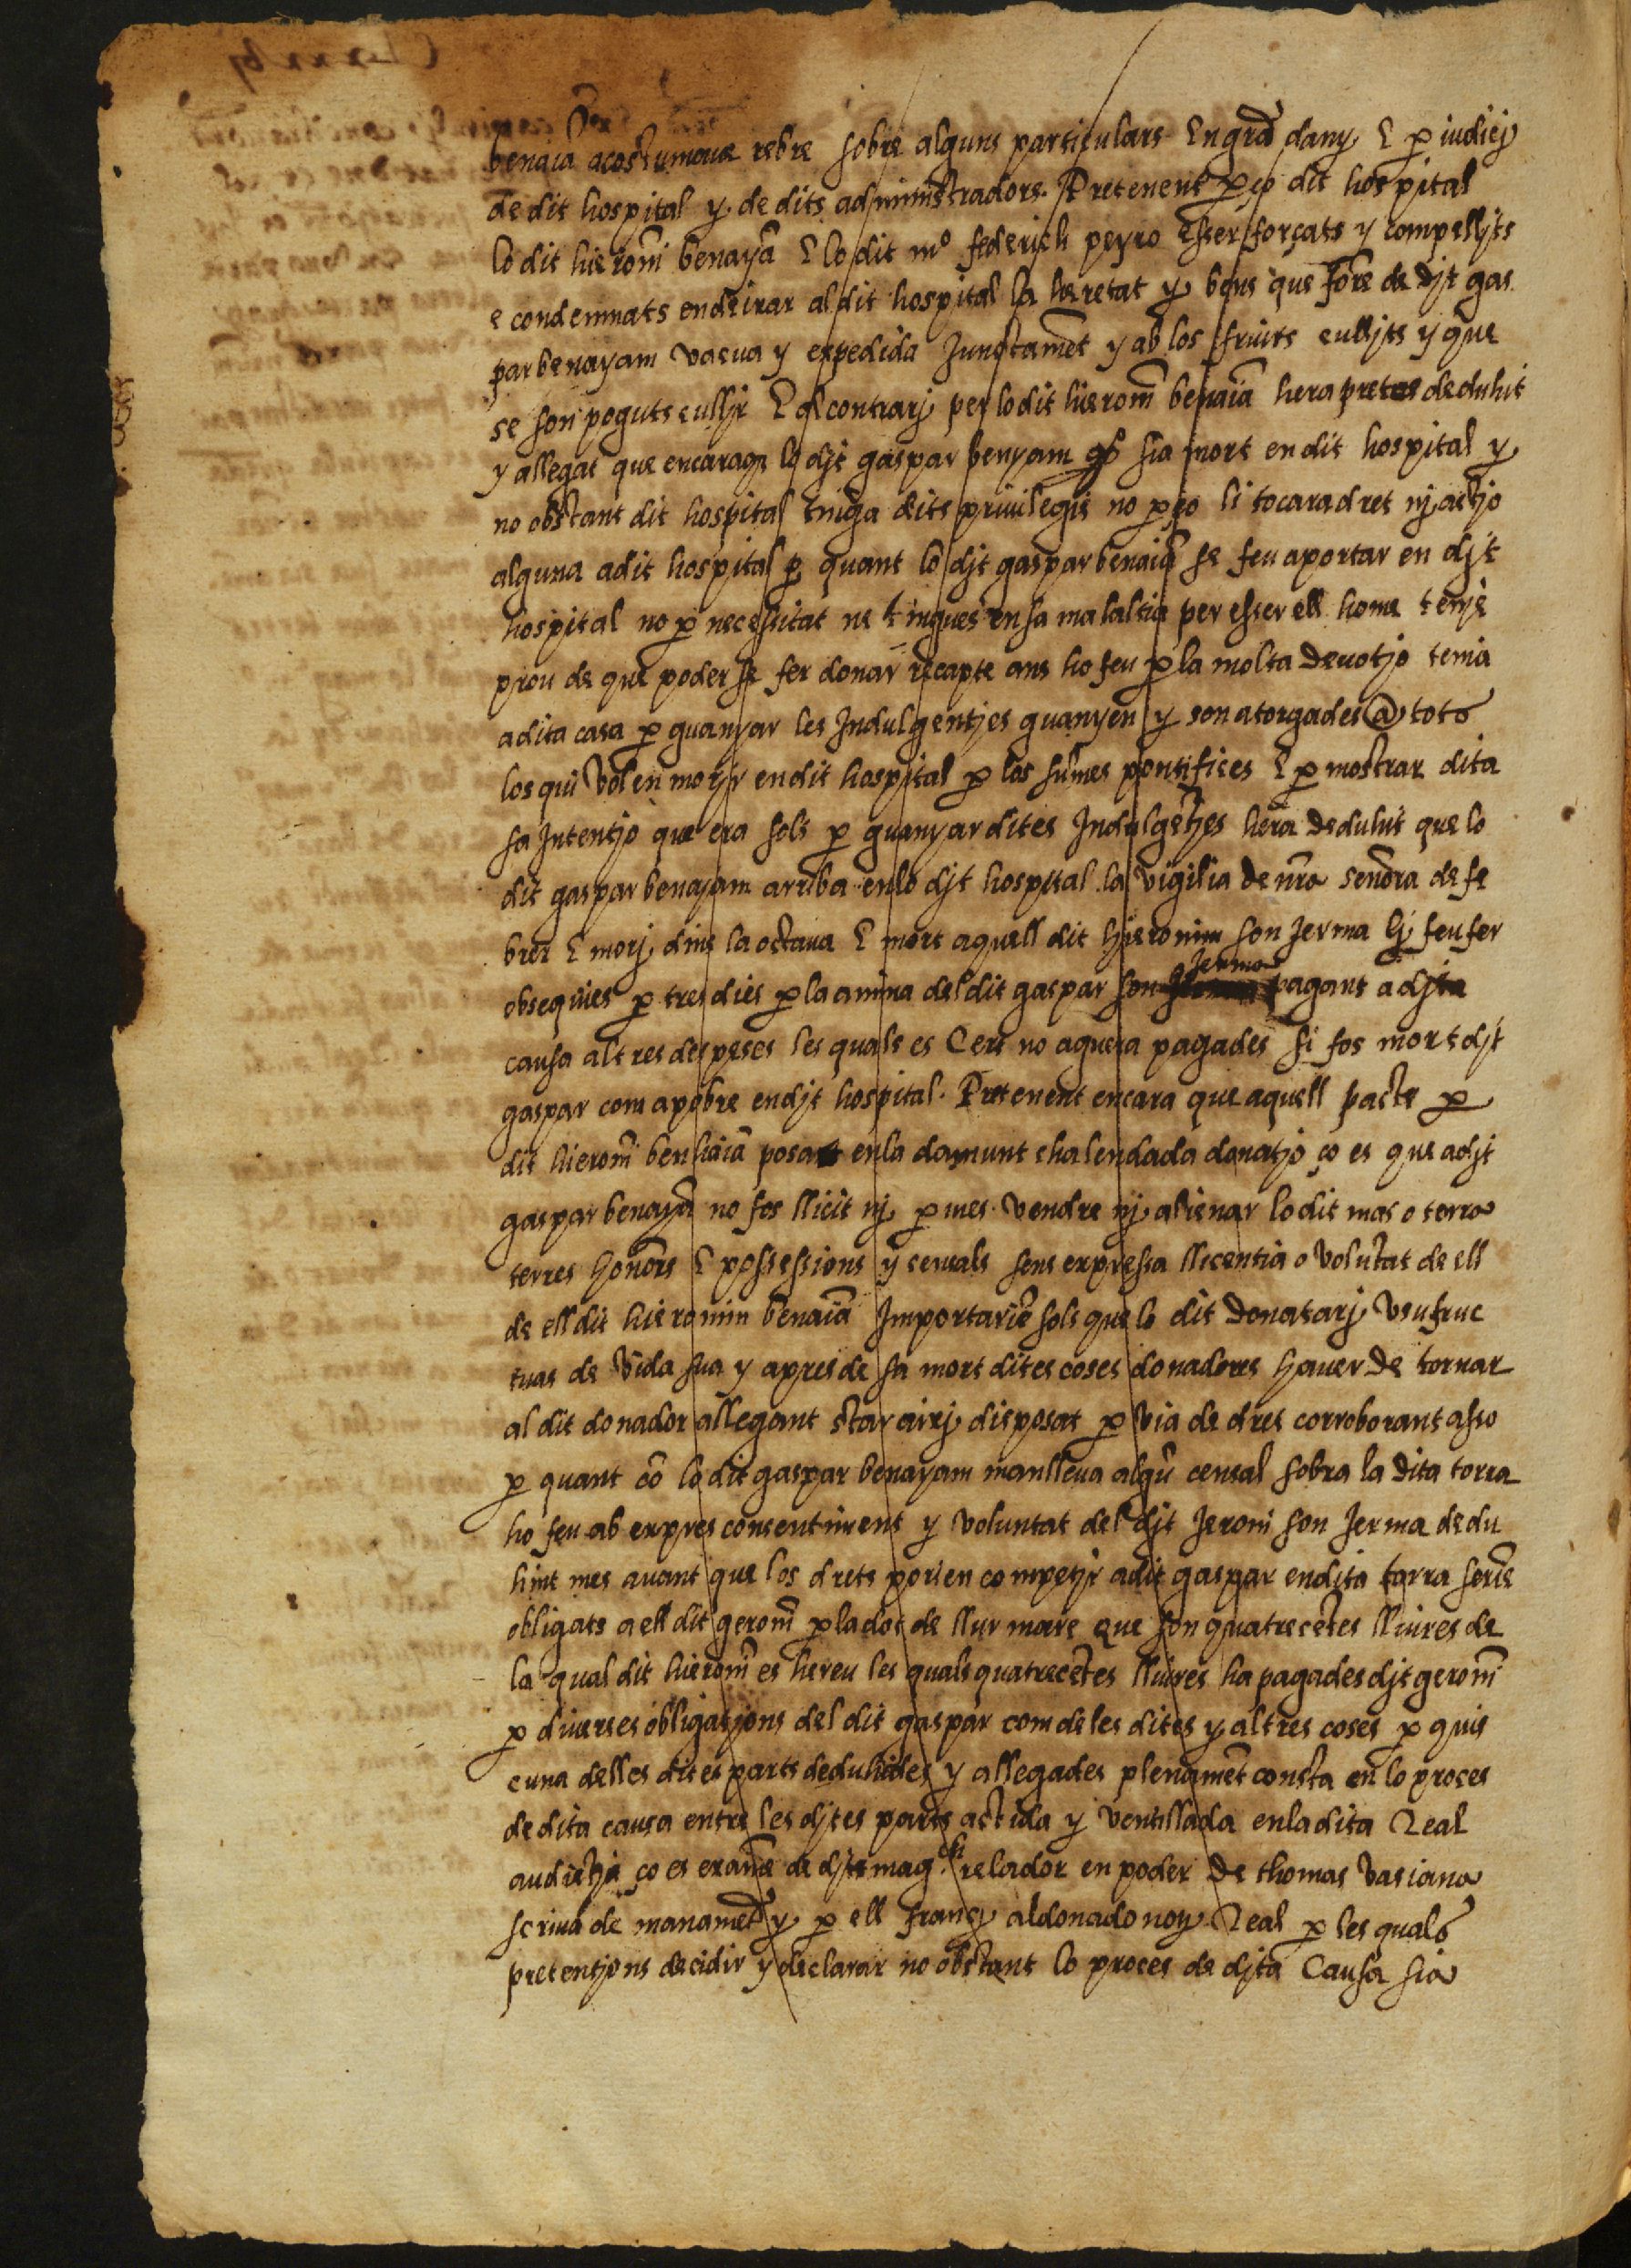 benaiã acostumaua rebre sobre alguns particulars En grã dany E p iudicj
de dit hospital y de dits administradors. Pretenent p ço dit hospital
lo dit hieromj benayã E lo dit mº federich peyro esser forçats y compellits
e condemnats en deixar al dit hospital la heretat y bens que fore de djt gas
par benayam vacua y expedida Junctamẽt y ab los fruits cullits y que
se son poguts cullir E al contrarj per lo dit hieromj benaiã hera pretes deduhit
y allegat que encara q̃ lo djt gaspar benyam sia mort en dit hospital y
no obstant dit hospital tinga dits priuilegis no p ço li tocara dret nj actjo
alguna a dit hospital p quant lo djt gaspar benaiã se feu aportar en djt
hospital no p necessitat ne tingues en sa malaltia per esser ell home tenje
prou de que poder se fer donar recapte ans ho feu p la molta deuotjo tenia
a dita casa p guanyar les Indulgentjes guanyen y son atorgades @ tots
los qui volen morjr en dit hospital p los sũmes pontifices E p mostrar dita
sa Intentjo que era sols p guanyar dites Indulgẽtjes hera deduhit que lo
dit gaspar benayam arriba en lo djt hospital la vigilia de nrã senõra de fe
brer E morj dins la octaua E mort aquell dit hjeronim son Jerma lj feu fer
obsequies p tres dies p la anima del dit gaspar son Jerma pagant a djta
causa altres despeses les quals es Cert no aguera pagades si fos mort djt
gaspar com a pobre en djt hospital. Pretenent encara que aquell pacte p
dit hieromj benhaiã posat en la damunt chalendada donatjo ço es que a djt
gaspar benayã no fos llicit nj p mes vendre nj alienar lo dit mas o torra
terres honors E possessions y censals sens expressa llicentia o volũtat de ell
de ell dit hieronim benaiã Importarie sols que lo dit donatarj vsufruc
tuas de vida sua y apres de sa mort dites coses donadores hauer de tornar
al dit donador allegant star airj disposat p via de dret corroborant asso
p quant cõ lo dit gaspar benayam manlleua algũ censal sobra la dita torra
ho feu ab expres consentiment y voluntat del djt Jeroni son Jerma dedu
hint mes auant que los drets porien competjr a dit gaspar en dita tarra serie
obligats a ell dit geromj p la dot de llur mare que son quatrecẽtes lliures de
la qual dit hieromj es hereu les quals quatrecẽtes lliures ha pagades djt geromj
p diuerses obligatjons del dit gaspar com de les dites y altres coses p quis
cuna delles dites parts deduhides y allegades plenamẽt consta en lo proces
de dita causa entre les djtes parts actida y ventillada en la dita Real
audiẽtja ço es exame de djt mag.ch relador en poder de thomas vasiana
scriua de manamẽt y p ell francj aldonado noty Real p les quals
pretentjons decidir y declarar no obstant lo proces de djta Causa sia